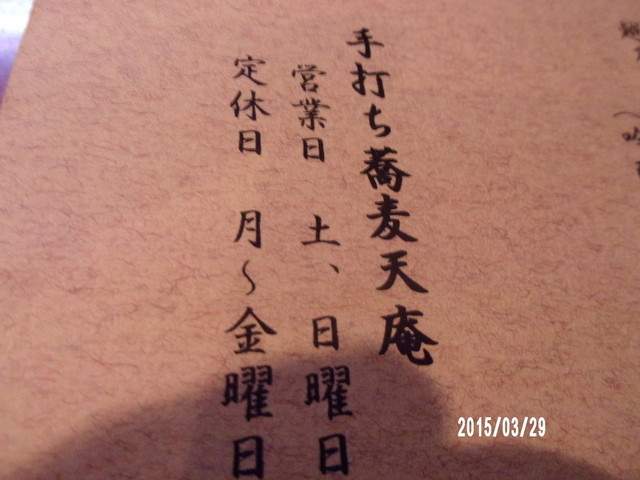 手打ち蕎麦天庵
営業日 土、日曜日
定休日 月〜金曜日
2015/03/29